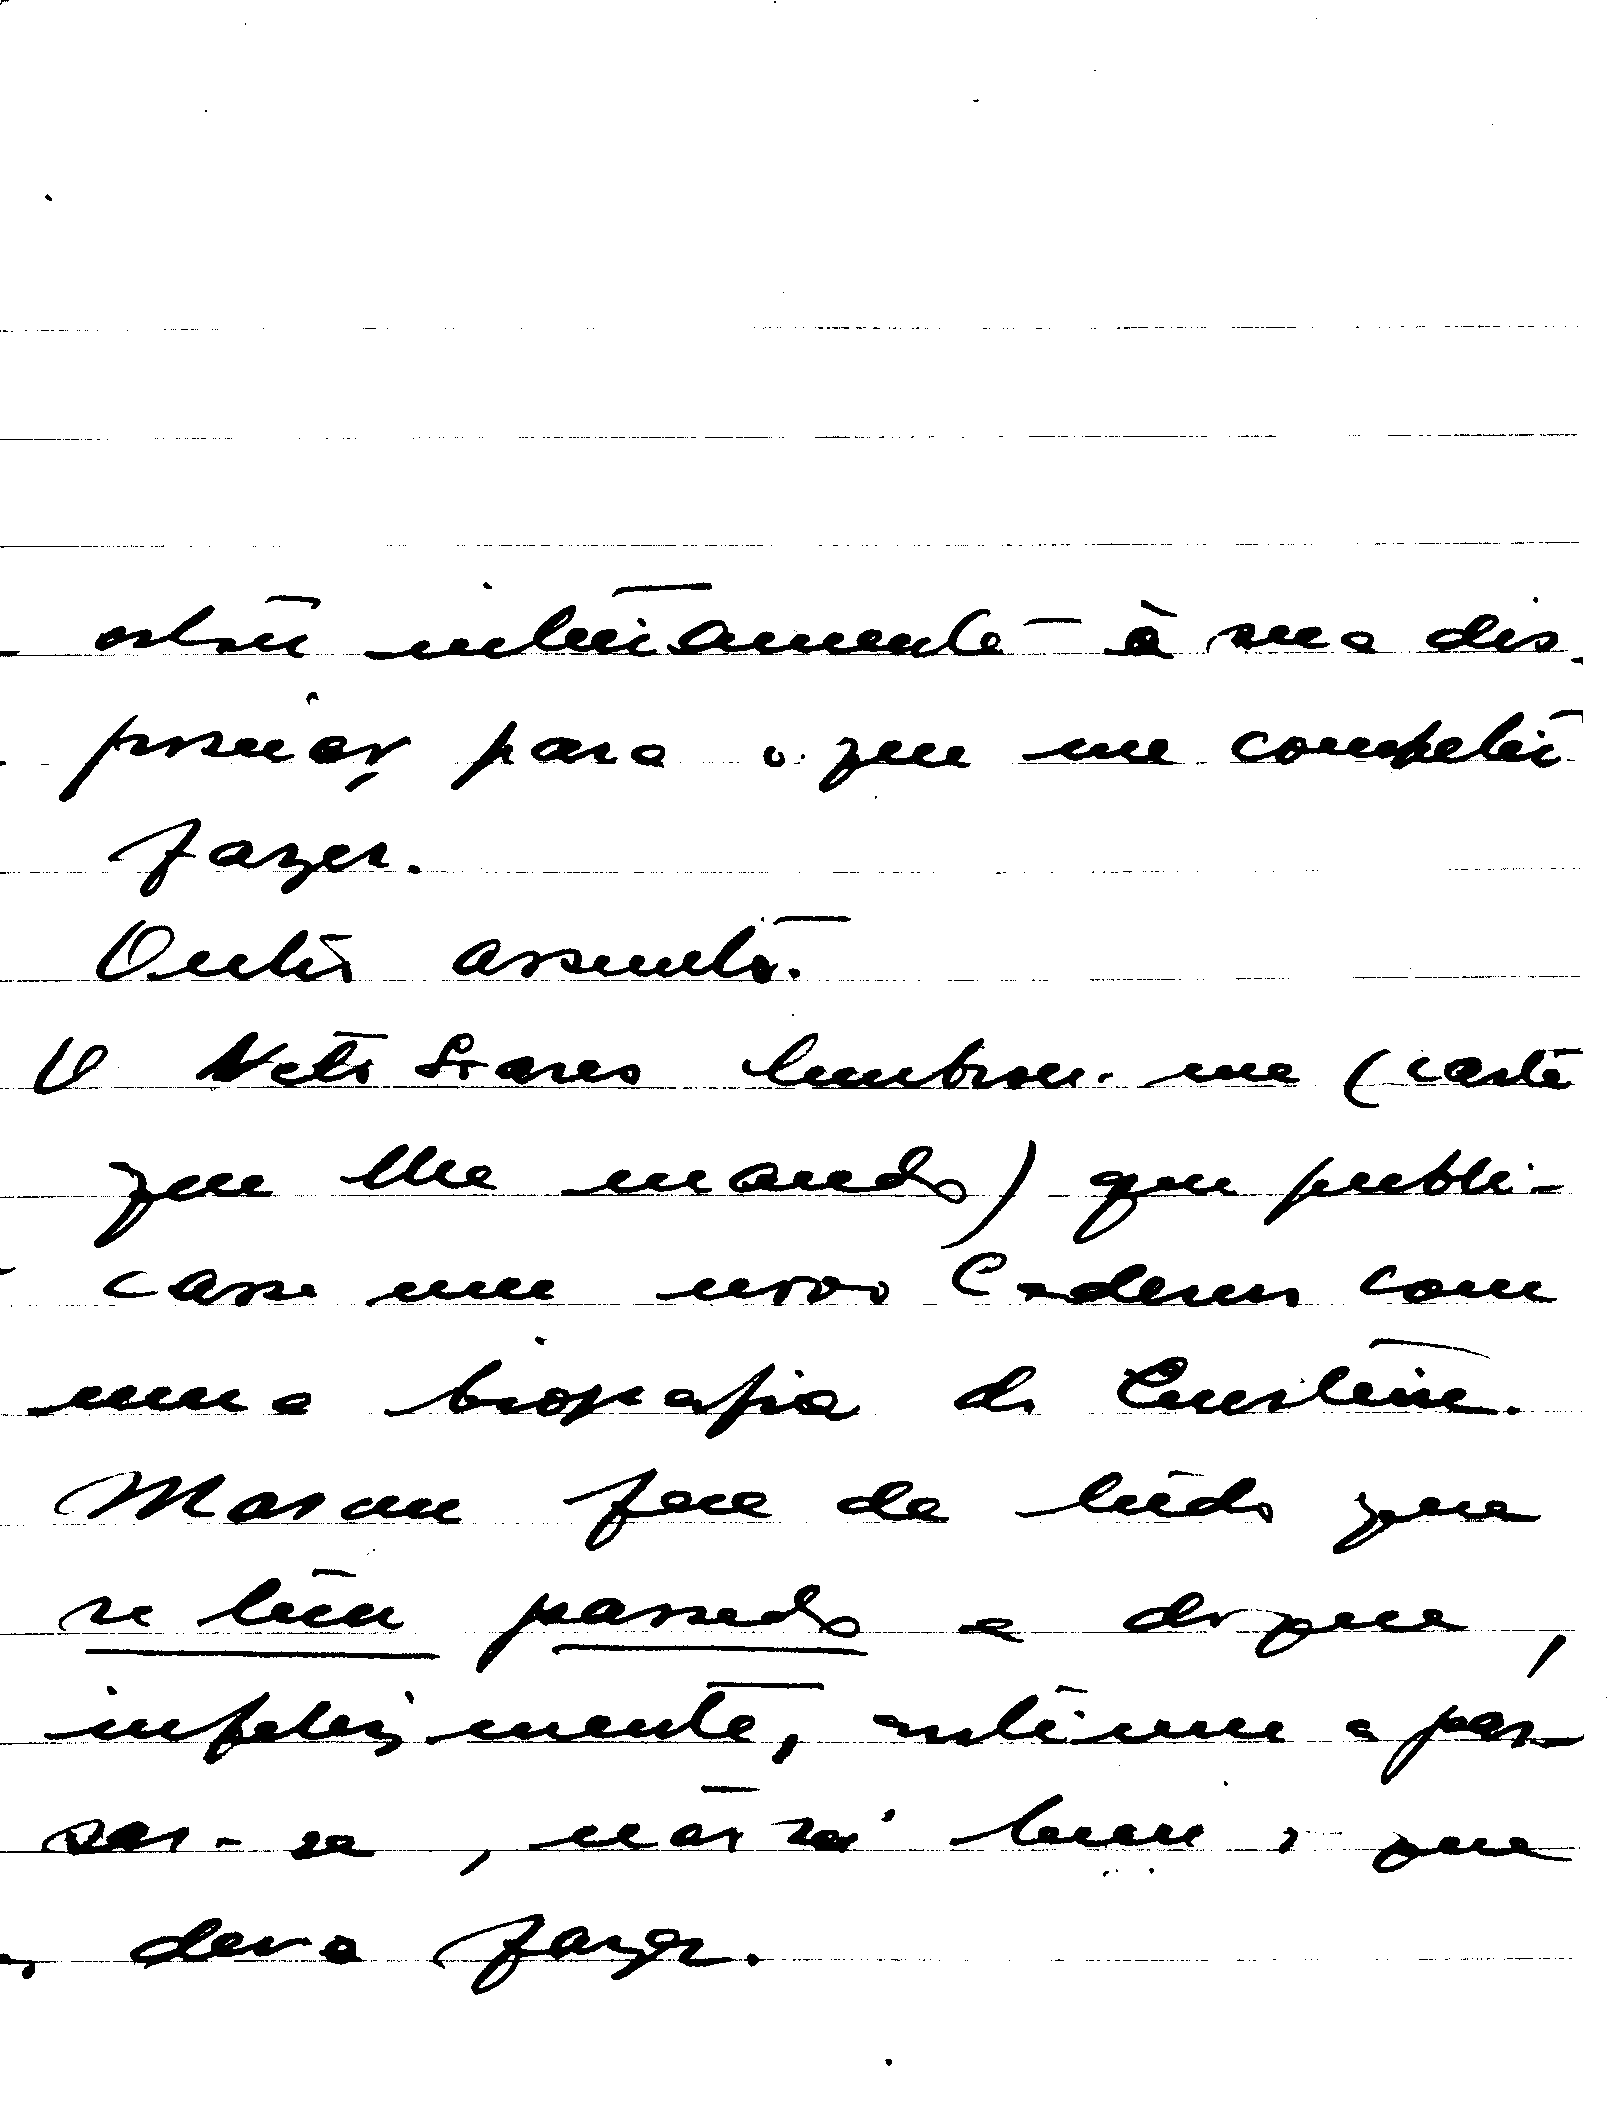 estou inteiramente à sua dis-
posição para o que me competir
fazer.
Outro assunto.
O Neto Soares lembrou-me (carta
que lhe mando) que publi-
casse um novo Caderno com
uma biografia de Einstein.
Mas em face de tudo que
se tem passado e do que,
infelizmente, continua a pas-
sar-se, não sei bem o que
deva fazer.